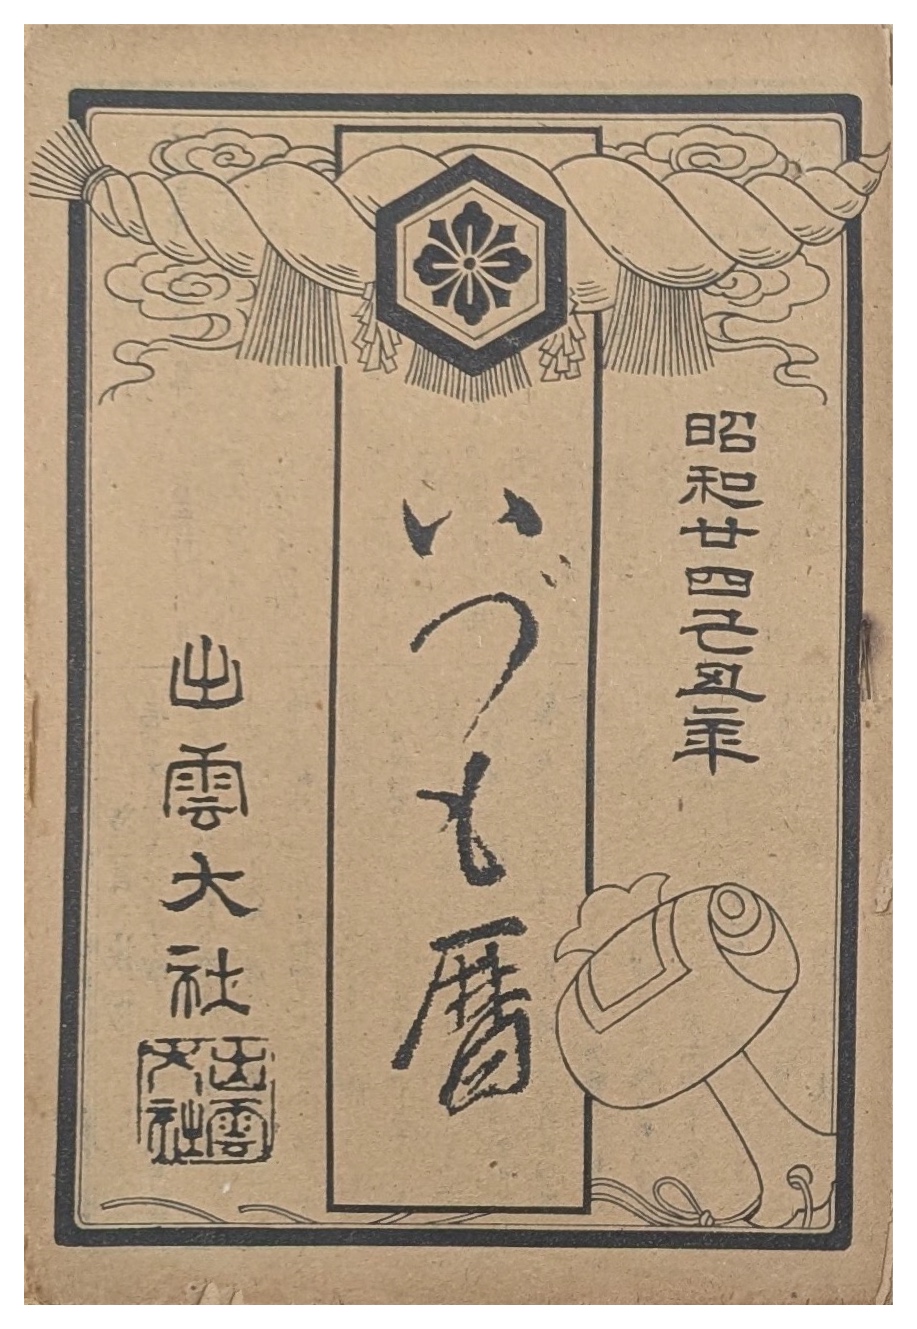 昭和廿四己丑年
いづも暦
出雲大社
出雲
大社